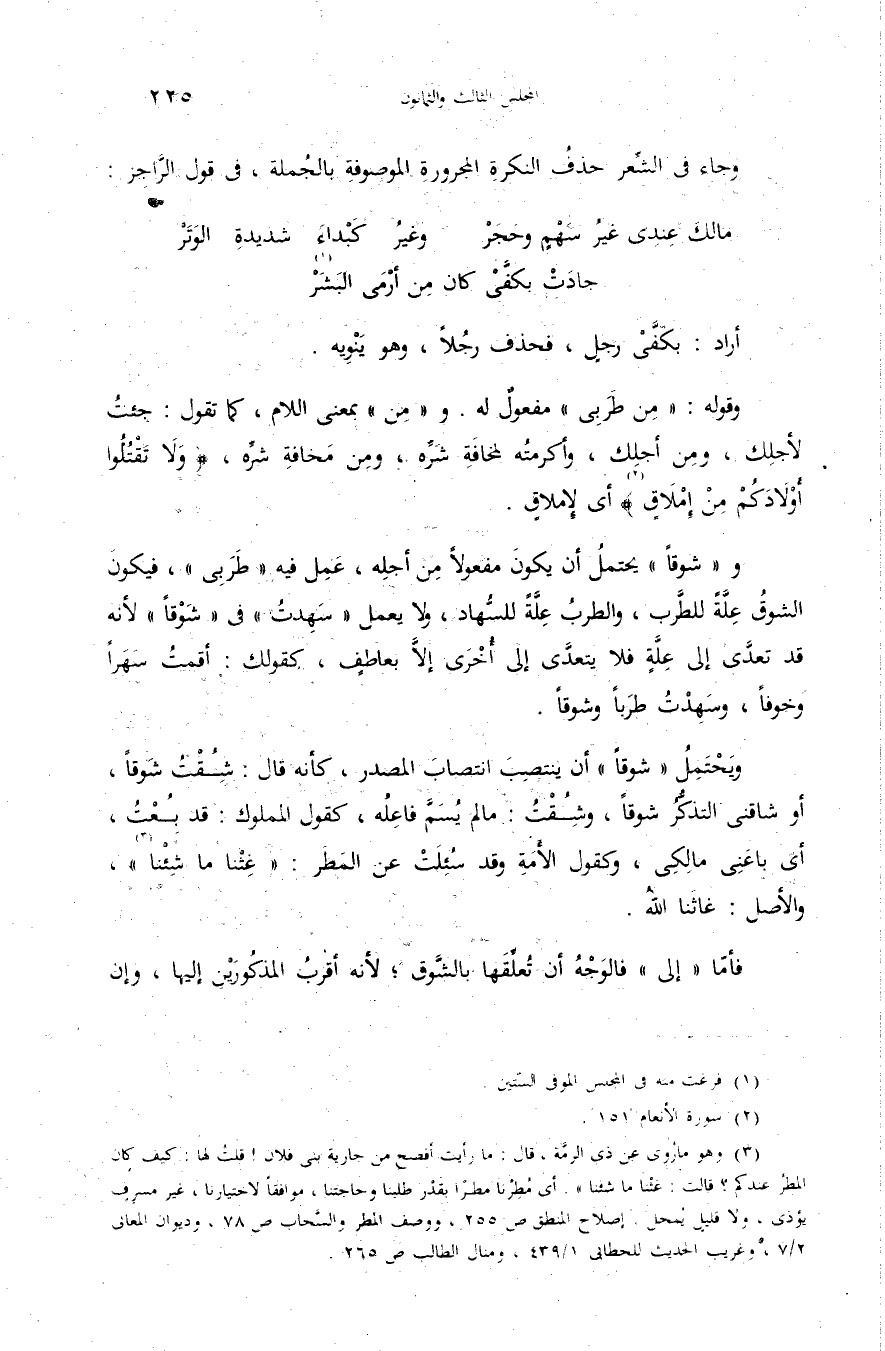 المجلس الثالث والثمانون ٢٢٥
وجاء فى الشِّعر حذفُ النكرةِ المجرورةِ الموصوفةِ بالجُملة ، فى قول الرَّاجز :
مالكَ عِندِى غيرُ سَهْمٍ وحَجَرْ وغيرُ كَبْداءَ شديدةِ الوَتَرْ
جادَتْ بكفَّىْ كان مِن أرْمَى البَشَرْ (١)
أراد : بكفَّىْ رجلٍ ، فحذف رجُلاً ، وهو يَنْوِيه .
وقوله : « مِن طَرَبِى » مفعولٌ له . و « مِن » بمعنى اللام ، كما تقول : جئتُ
لأجلِك ، ومِن أجلِك ، وأكرمتُه لمخافَةِ شَرِّه ، ومِن مَخافةِ شرِّه ، ﴿ وَلَا تَقْتُلُوا
أَوْلَادَكُمْ مِنْ إِمْلَاقٍ ﴾ (٢) أى لإملاقٍ .
و « شوقاً » يحتملُ أن يكونَ مفعولاً مِن أجلِه ، عَمِل فيه « طَرَبِى » ، فيكونَ
الشوقُ عِلَّةً للطَّرب ، والطربُ عِلَّةً للسُّهاد ، ولا يعمل « سَهِدتُ » فى « شَوْقاً » لأنه
قد تعدَّى إلى عِلَّةٍ فلا يتعدَّى إلى أُخْرَى إلاَّ بعاطفٍ ، كقولك : أقمتُ سَهَراً
وخوفاً ، وسَهِدْتُ طرَباً وشوقاً .
ويَحْتَمِلُ « شوقاً » أن ينتصِبَ انتصابَ المصدر ، كأنه قال : شِـُقْتُ شَوقاً ،
أو شاقنى التذكُّرُ شوقاً ، وشِـُقْتُ : مالم يُسَمَّ فاعِلُه ، كقول المملوك : قد بِـُعْتُ ،
أى باعَنِى مالِكِى ، وكقول الأَمَةِ وقد سُئِلَتْ عن المَطَر : « غِثْنا ما شِئْنا (٣) » ،
والأصل : غاثَنا اللّٰهُ .
فأمّا « إلى » فالوَجْهُ أن تُعلِّقَها بالشَّوق ؛ لأنه أقربُ المذكورَيْنِ إليها ، وإن
(١) فرغت منه فى المجلس الموفى الستّين .
(٢) سورة الأنعام ١٥١ .
(٣) وهو مارُوى عن ذى الرمّة ، قال : ما رأيت أفصح من جارية بنى فلان ! قلتُ لها : كيف كان
المطرُ عندكم ؟ قالت : غثنا ما شئنا » . أى مُطِرْنا مطرًا بقَدْر طلبنا وحاجتنا ، موافقاً لاختيارنا ، غير مسرفٍ
يؤذى ، ولا قليلٍ يُمحل . إصلاح المنطق ص ٢٥٥ ، ووصف المطر والسَّحاب ص ٧٨ ، وديوان المعانى
٧/٢ ، وغريب الحديث للخطابى ٤٣٩/١ ، ومنال الطالب ص ٢٦٥ .